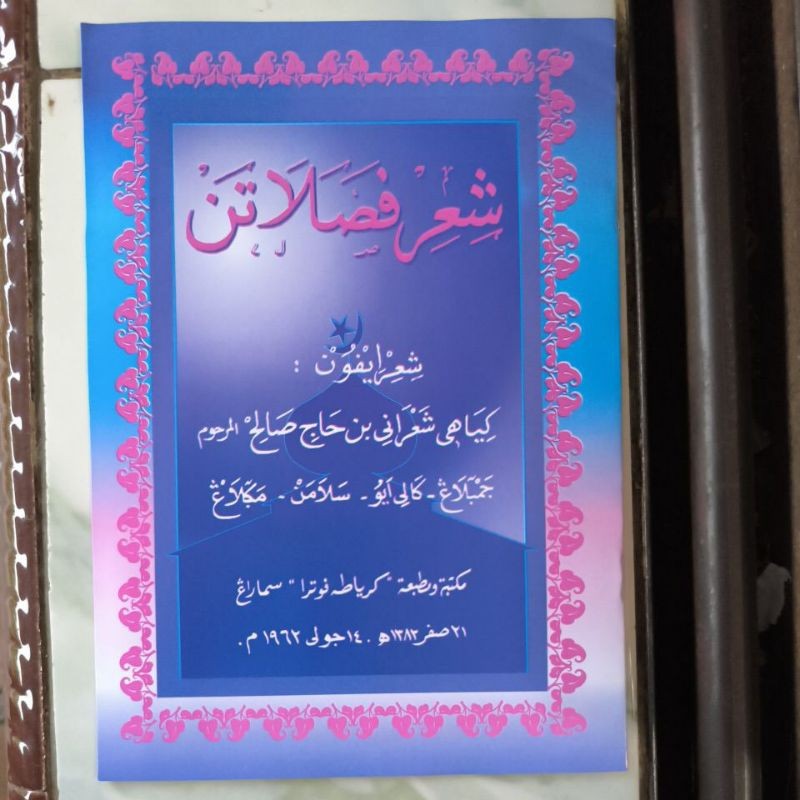 شِعِرْ فَصَلَاتَنْ
شِعِرْ اِيْفُوْنْ :
كِيَاهِي شَعْرَانِي بن حَاجِ صَالِحْ المرحوم
جَمْبَلَاڠْ - كَالِي اَبُو - سَلَامَنْ - مَڮَلَاڠْ
مكتبة ومطبعة "كرياطه فوترا" سماراڠ
٢١ صفر ١٣٨٢ﻫ . ١٤ جولى ١٩٦٢ م.